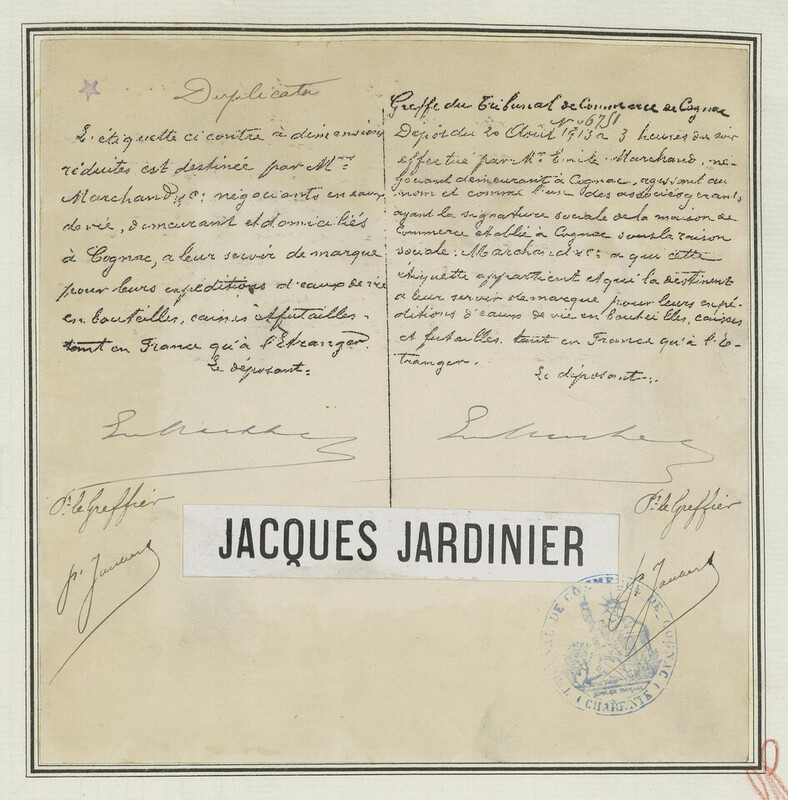 Duplicata
L'étiquette ci contre à dimensions
réduites est destinée par M.rs
Marchand & Cie négociants en eaux
de vie, demeurant et domiciliés
à Cognac, a leur servir de marque
pour leurs expéditions d'eaux de vie
en bouteilles, caisses et futailles
tant en France qu'à l'Etranger.
Le déposant:
Pr. le Greffier
Greffe du Tribunal de Commerce de Cognac
No 6751
Dépôt du 20 Août 1913 à 3 heures du soir
effectué par Mr Emile Marchand, né-
gociant demeurant à Cognac, agissant au
nom et comme l'un des associés gérants
ayant la signature sociale de la maison de
Commerce établie à Cognac sous la raison
sociale: Marchand & Cie à qui cette
étiquette appartient et qui la destinent
a leur servir de marque pour leurs expé-
ditions d'eaux de vie en bouteilles, caisses
et futailles tant en France qu'à l'é-
tranger.
Le déposant:
Pr. le Greffier
JACQUES JARDINIER
TRIBUNAL DE COMMERCE DE COGNAC
(CHARENTE)